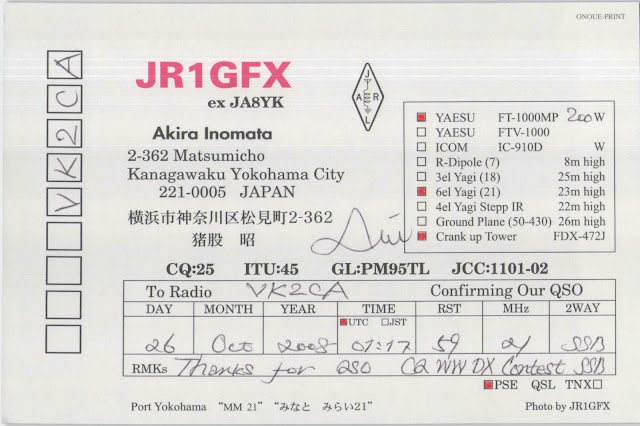 ONOUE-PRINT
VK2CA
JR1GFX
ex JA8YK
J
A R
L
Akira Inomata
2-362 Matsumicho
Kanagawaku Yokohama City
221-0005 JAPAN
横浜市神奈川区松見町2-362
猪股 昭
YAESU FT-1000MP 200 W
YAESU FTV-1000
ICOM IC-910D W
R-Dipole (7) 8m high
3el Yagi (18) 25m high
6el Yagi (21) 23m high
4el Yagi Stepp IR 22m high
Ground Plane (50-430) 26m high
Crank up Tower FDX-472J
CQ:25 ITU:45 GL:PM95TL JCC:1101-02
To Radio VK2CA Confirming Our QSO
DAY MONTH YEAR TIME RST MHz 2WAY
UTC JST
26 Oct 2008 01:17 59 21 SSB
RMKs Thanks for QSO CQ WW DX Contest SSB
PSE QSL TNX
Port Yokohama “MM 21” “みなと みらい21” Photo by JR1GFX